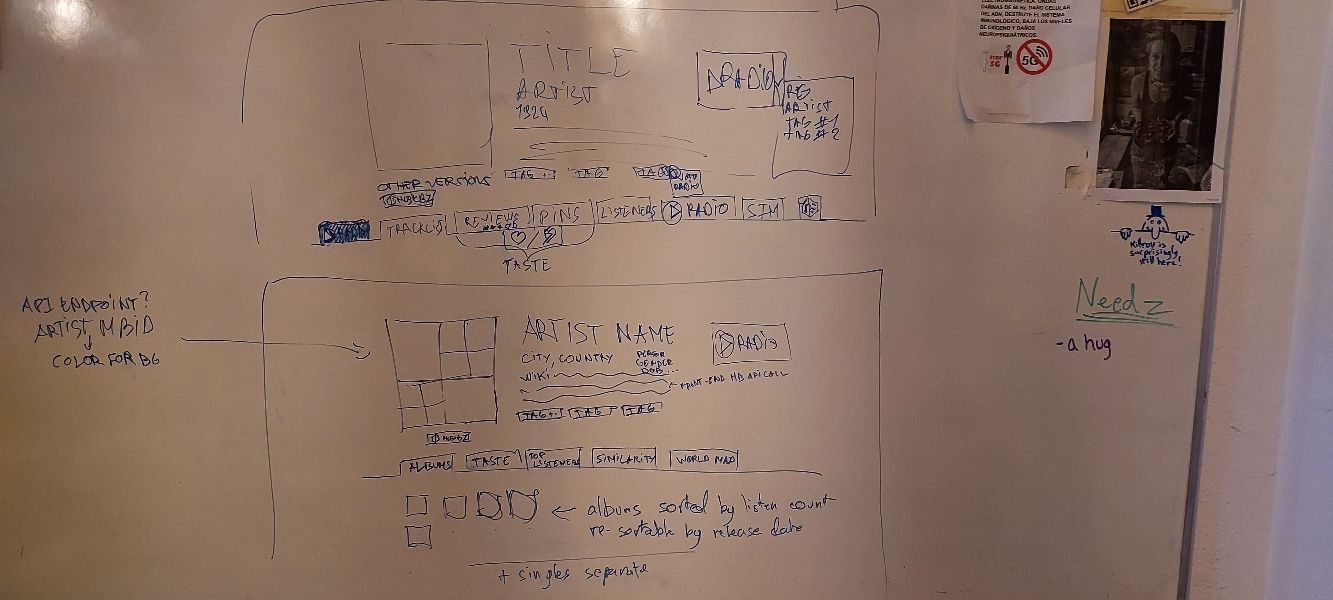 TITLE
ARTIST
1924
RADIO
ARTIST
TAG #1
TAG #2
OTHER VERSIONS
TAG
TAG
RADIO
TRACKLIST
REVIEWS
PINS
LISTENERS
RADIO
SIM
TASTE
API ENDPOINT?
ARTIST MBID
COLOR FOR BG
ARTIST NAME
CITY, COUNTRY
PERSON
GENDER
DOB...
WIKI
RADIO
FRONT-END MB API CALL
TAG
TAG
TAG
ALBUMS
TASTE
TOP
LISTENERS
SIMILARITY
WORLD MAP
albums sorted by listen count
re-sortable by release date
+ singles separate
DEL ADN, DESTRUYE EL SISTEMA
INMUNOLÓGICO, BAJA LOS NIVELES
DE OXÍGENO Y DAÑOS
NEUROPSIQUIÁTRICOS.
STOP
5G
5G
Kilroy is
surprisingly
still here!
Needz
- a hug